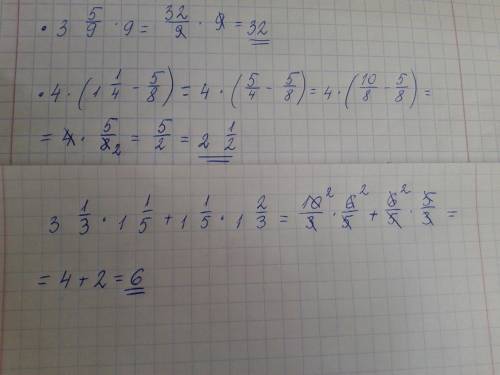 • 3 5/9 · 9 = 32/9 · 9 = 32
• 4 · (1 1/4 - 5/8) = 4 · (5/4 - 5/8) = 4 · (10/8 - 5/8) =
= 4 · 5/8 2 = 5/2 = 2 1/2
3 1/3 · 1 1/5 + 1 1/5 · 1 2/3 = 10/3 2 · 6/5 2 + 6/5 2 · 5/3 =
= 4 + 2 = 6